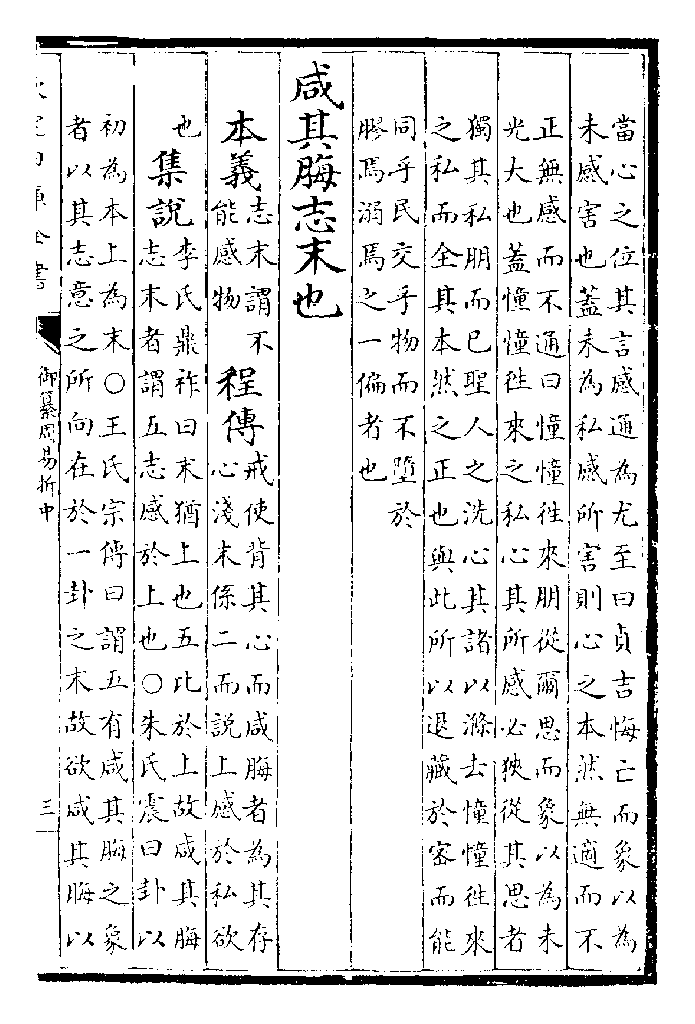 當心之位其言感通為尤至曰貞吉悔亡而象以為
未感害也蓋未為私感所害則心之本然無適而不
正無感而不通曰憧憧徃來朋從爾思而象以為未
光大也蓋憧憧徃來之私心其所感必狹從其思者
獨其私朋而已聖人之洗心其諸以滌去憧憧徃來
之私而全其本然之正也與此所以退藏於密而能
同乎民交乎物而不墮於
膠焉溺焉之一偏者也
咸其脢志末也
本義
志末謂不
能感物
程傳
戒使背其心而咸脢者為其存
心淺末係二而説上感於私欲
也
集説
李氏鼎祚曰末猶上也五比於上故咸其脢
志末者謂五志感於上也○朱氏震曰卦以
初為本上為末○王氏宗傳曰謂五有咸其脢之象
者以其志意之所向在於一卦之末故欲咸其脢以
欽定四庫全書
御纂周易折中
三